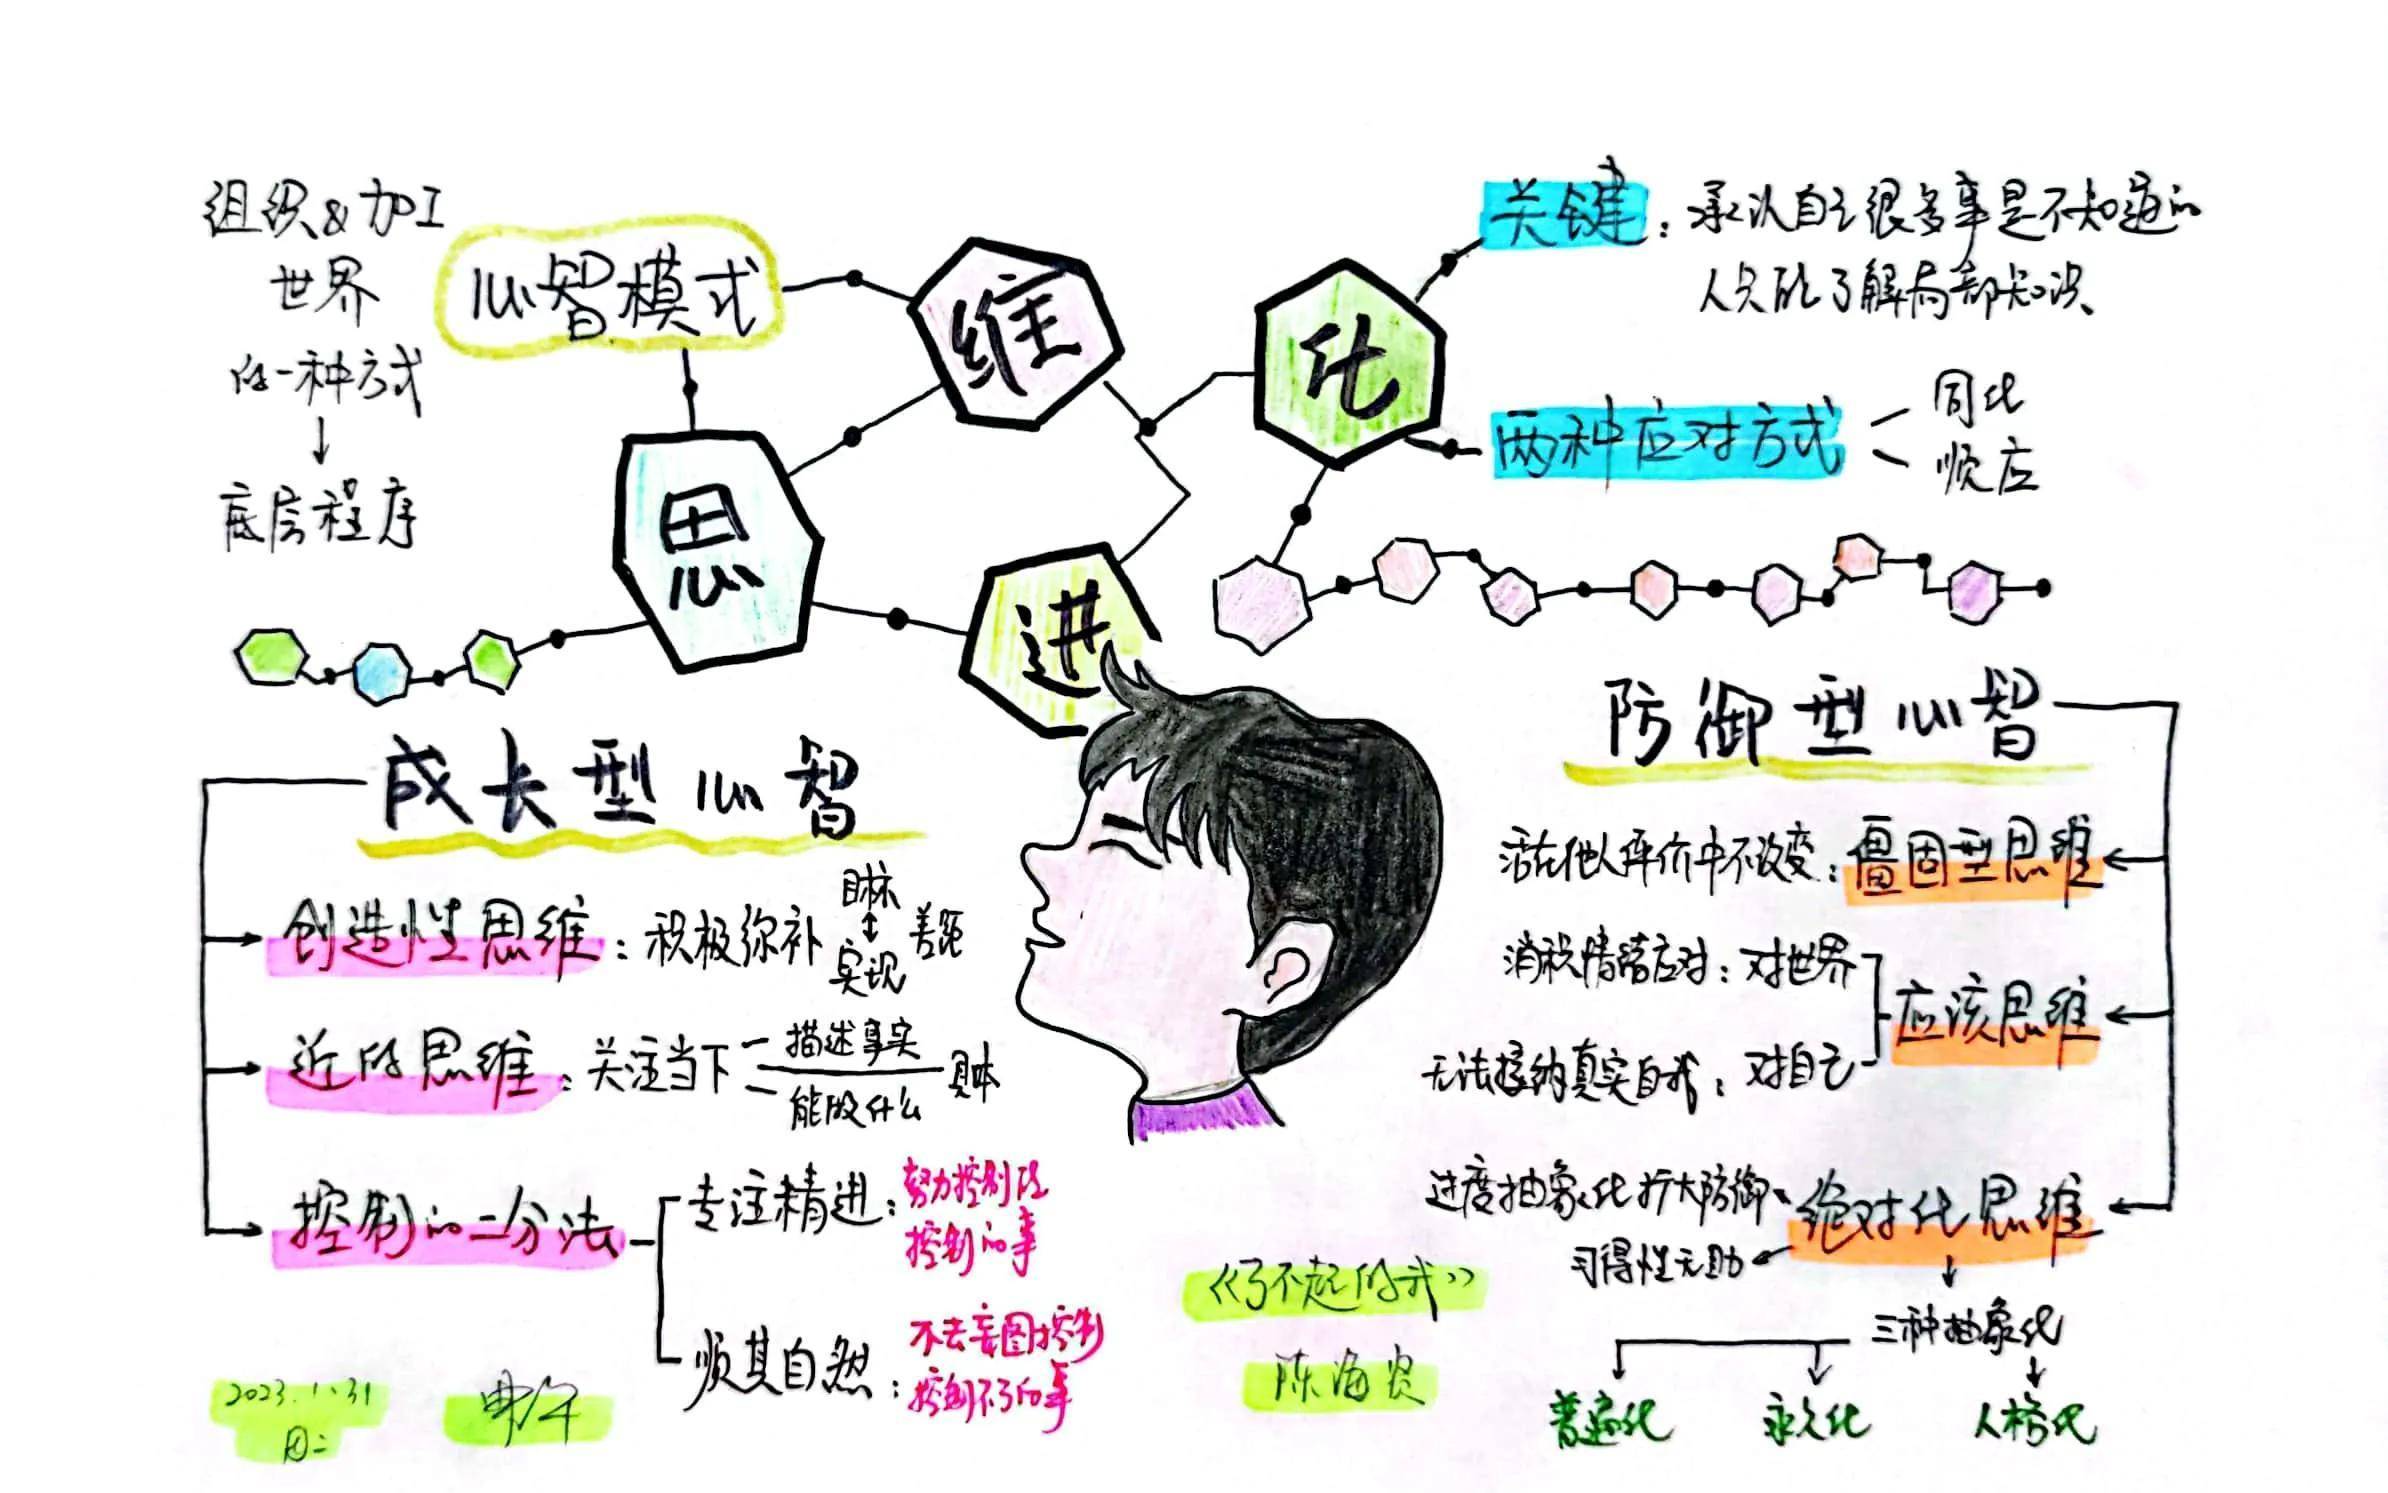 思维进化
组织&加工
世界
的一种方式
↓
底层程序
心智模式
关键：承认自己很多事是不知道的
人只能了解局部知识
两种应对方式
同化
顺应
成长型心智
创造性思维：积极弥补
目标
↕
实现
差距
近的思维：关注当下
描述事实
能做什么
具体
控制的二分法
专注精进：努力控制能
控制的事
顺其自然：不去妄图控制
控制不了的事
防御型心智
活在他人评价中不改变：僵固型思维
应该思维
消极情绪应对：对世界
无法接纳真实自我：对自己
过度抽象化扩大防御
绝对化思维
习得性无助
↓
三种抽象化
普遍化
永久化
人格化
《了不起的我》
陈海贤
2023.1.31
周二